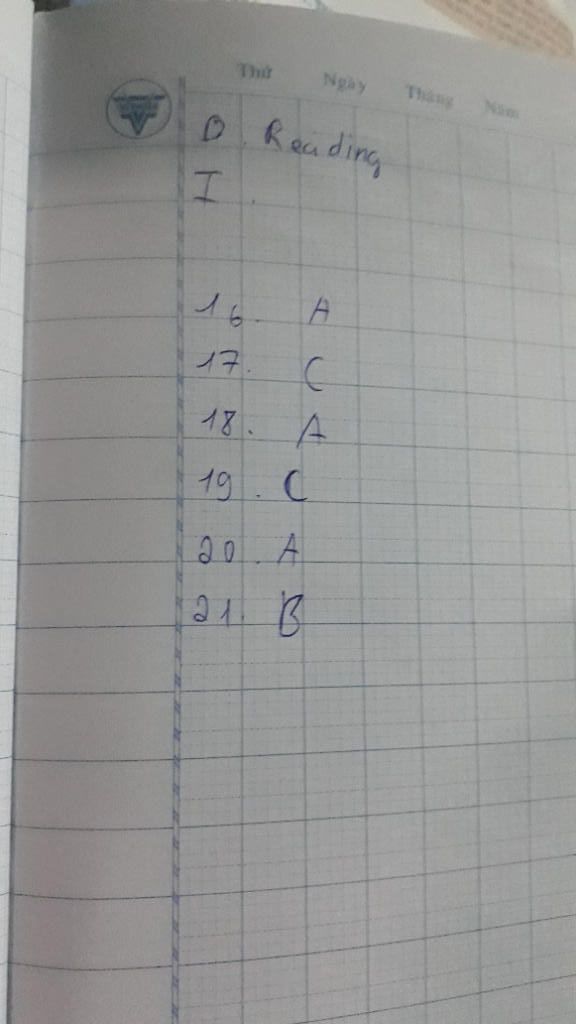 Thứ Ngày Tháng Năm
D. Reading
I.
16. A
17. C
18. A
19. C
20. A
21. B